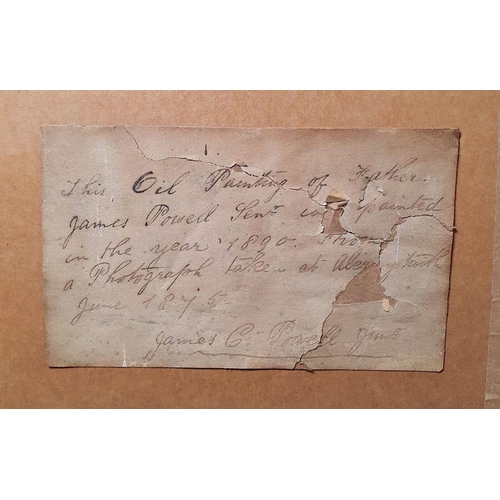 This Oil Painting of Father
James Powell Senr was painted
in the year 1890. From
a Photograph taken at
June 1875
James C. Powell Junr